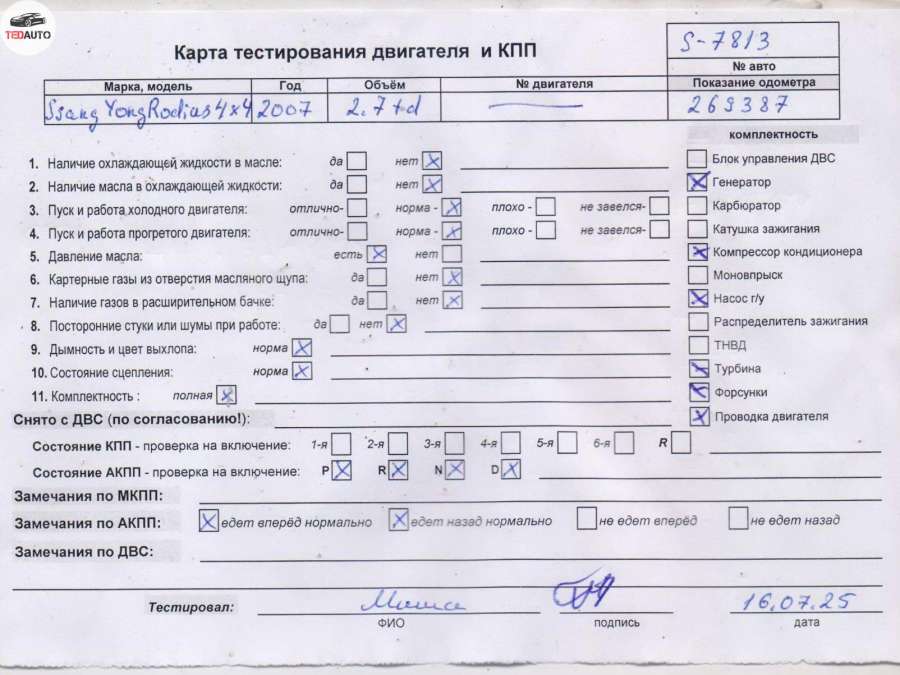 TEDAUTO
Карта тестирования двигателя и КПП
S-7813
№ авто
Марка, модель Год Объём № двигателя Показание одометра
SsangYong Rodius 4x4 2007 2.7td — 269387
комплектность
1. Наличие охлаждающей жидкости в масле: да нет X Блок управления ДВС
2. Наличие масла в охлаждающей жидкости: да нет X X Генератор
3. Пуск и работа холодного двигателя: отлично- норма - X плохо - не завелся- Карбюратор
4. Пуск и работа прогретого двигателя: отлично- норма - X плохо - не завелся- Катушка зажигания
5. Давление масла: есть X нет X Компрессор кондиционера
6. Картерные газы из отверстия масляного щупа: да нет X Моновпрыск
7. Наличие газов в расширительном бачке: да нет X X Насос г/у
8. Посторонние стуки или шумы при работе: да нет X Распределитель зажигания
9. Дымность и цвет выхлопа: норма X ТНВД
10. Состояние сцепления: норма X X Турбина
11. Комплектность : полная X X Форсунки
Снято с ДВС (по согласованию!): X Проводка двигателя
Состояние КПП - проверка на включение: 1-я 2-я 3-я 4-я 5-я 6-я R
Состояние АКПП - проверка на включение: P X R X N X D X
Замечания по МКПП:
Замечания по АКПП: X едет вперёд нормально X едет назад нормально не едет вперёд не едет назад
Замечания по ДВС:
Тестировал: Миша 16.07.25
ФИО подпись дата